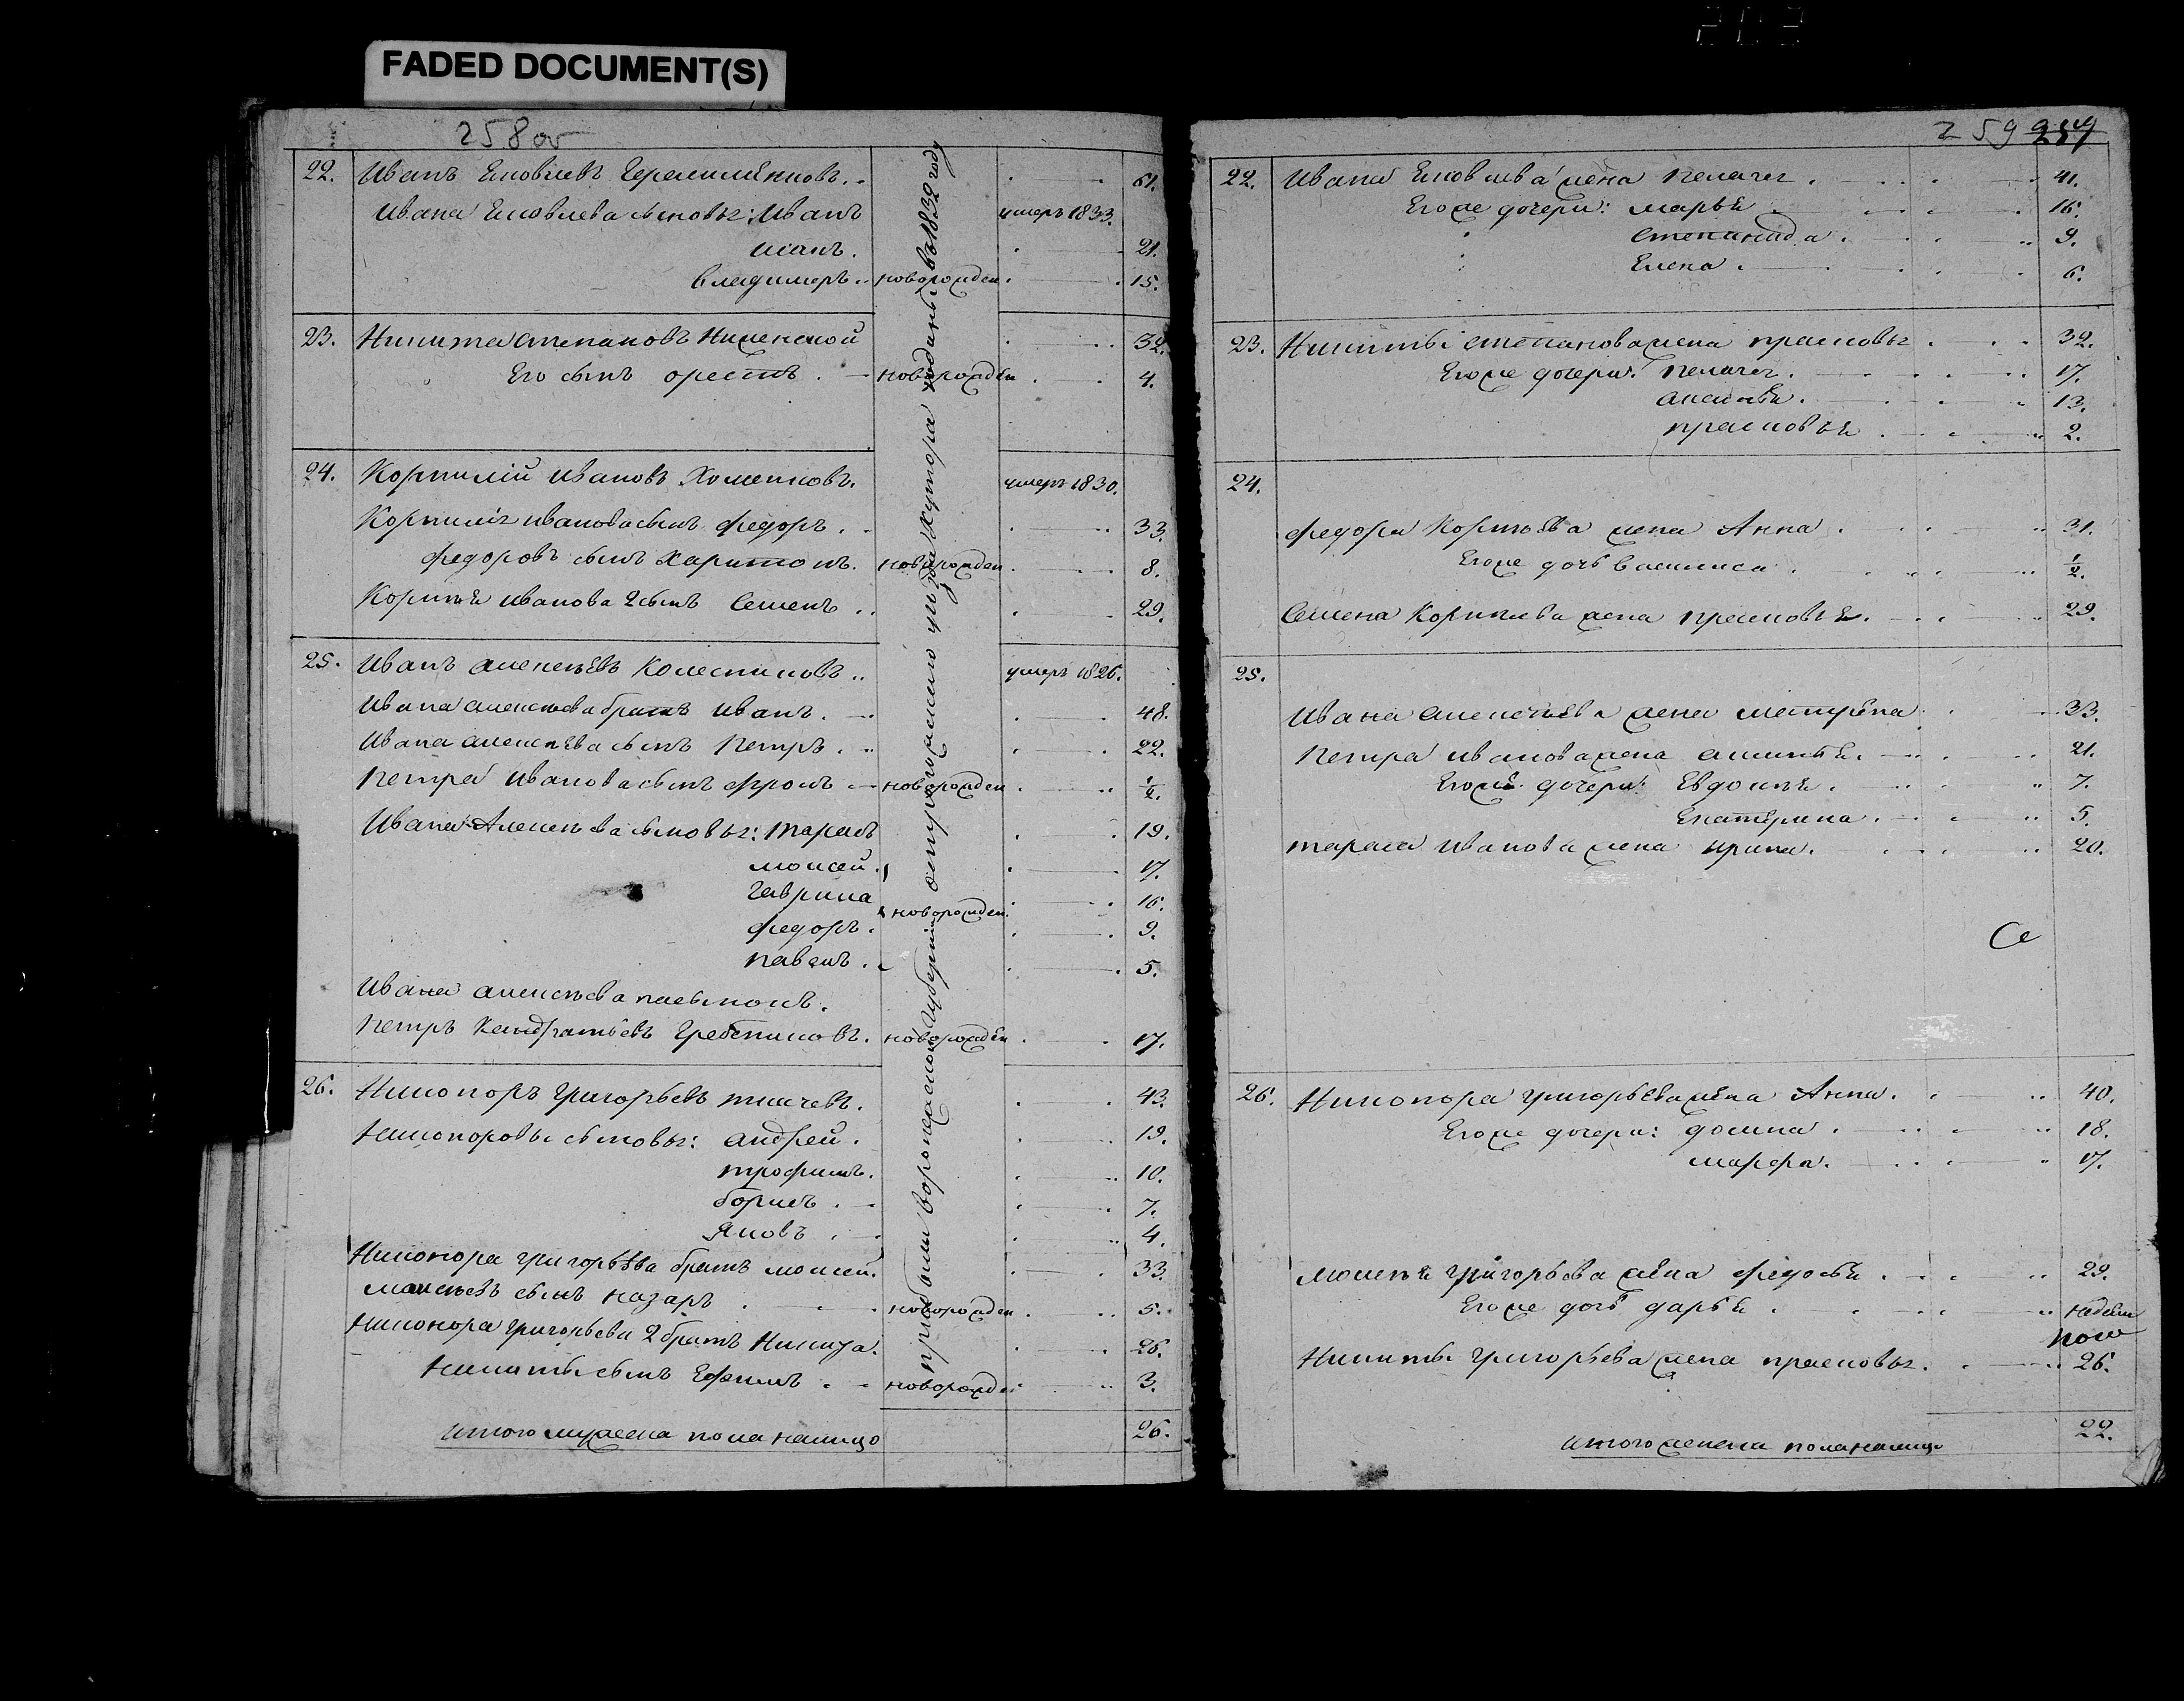 FADED DOCUMENT(S)
258 об
22. Иванъ Яковлевъ Герасименковъ. 61.
Ивана Яковлева сыновья: Иванъ умеръ 1833.
Исакъ. 21.
Владимеръ новорожден. 15.
23. Никита Степановъ 32.
Его сынъ Орестъ. новорожден 4.
24. Корнилій Ивановъ Хоменковъ. умеръ 1830.
Корнилія Иванова сынъ Федоръ. 33.
Федоровъ сынъ Харитонъ. новорожден. 8.
Корнѣя Иванова 2 сынъ Семенъ 29.
25. Иванъ Алексеевъ Колесниковъ умеръ 1826.
Ивана Алексеева братъ Иванъ. 48.
Ивана Алексеева сынъ Петръ. 22.
Петра Иванова сынъ Фролъ новорожден. 1/2.
Ивана Алексеева сыновья: Тарасъ 19.
Моисей. 17.
Гаврила 16.
новорожден.
Федоръ. 9.
Павелъ. 5.
Ивана Алексеева
Петръ Кандратьевъ Гребениковъ. новорожден 17.
26. Никоноръ Григорьевъ Ткачевъ. 43.
Никоноровы сыновья: Андрей. 19.
Трофимъ. 10.
Борисъ. 7.
Яковъ 4.
Никонора Григорьева братъ Моисей. 33.
Моисеевъ сынъ Назаръ новорожден 5.
Никонора Григорьева 2 братъ Никита. 26.
Никиты сынъ Ефимъ новорожден 3.
Итого мужеска пола налицо 26.
прибыли Воронежской губерніи Острогожскаго уѣзда хутора въ 1832 году
259 257
22. Ивана Яковлева жена Пелагея 41.
Его же дочери: Марья 16.
Степанида. 9.
Елена. 6.
23. Никиты Степанова жена Прасковья 32.
Его же дочери: Пелагея. 17.
Аксинья. 13.
Прасковья 2.
24.
Федора Корнѣева жена Анна 31.
Его же дочь Василиса 1/2.
Семена Корнѣева жена Прасковья. 29.
25.
Ивана Алексеева жена Матрена 33.
Петра Иванова жена Аксинья. 21.
Его же дочери: Евдокия. 7.
Екатерина. 5.
Тараса Иванова жена Ирина. 20.
26. Никонора Григорьева жена Анна. 40.
Его же дочери: Домна 18.
Марфа. 17.
Моисея Григорьева жена Федосья 29.
Его же дочь Дарья
Никиты Григорьева жена Прасковья. 26.
Итого женска пола налицо 22.